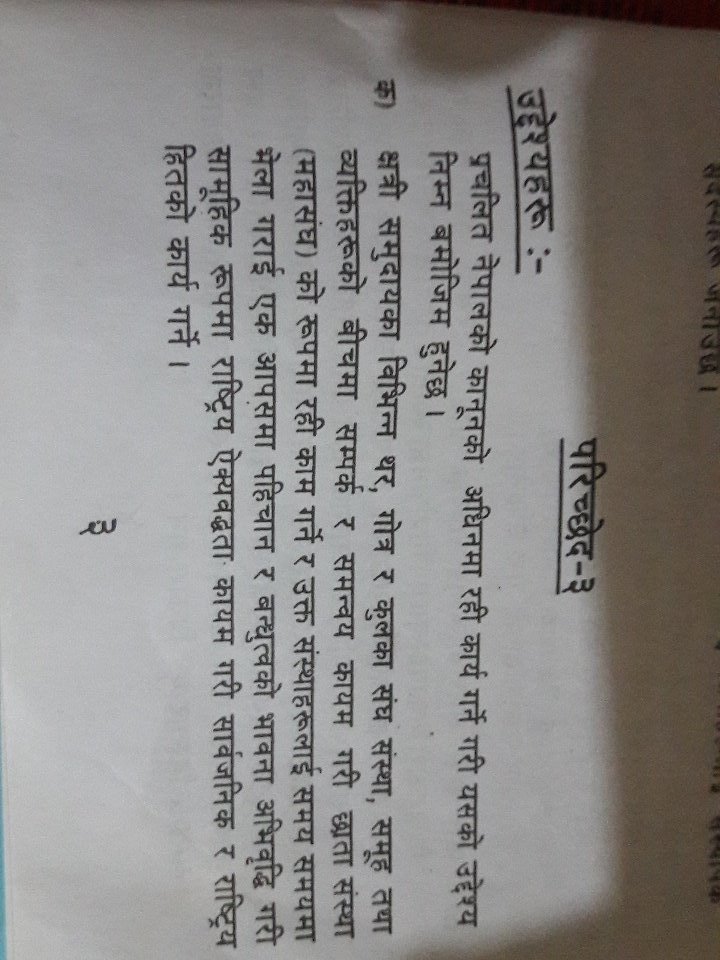 सदस्यहरू जनाउछ ।
परिच्छेद-३
उद्देश्यहरू :-
प्रचलित नेपालको कानूनको अधिनमा रही कार्य गर्ने गरी यसको उद्देश्य
निम्न बमोजिम हुनेछ ।
क) क्षत्री समुदायका विभिन्न थर, गोत्र र कुलका संघ संस्था, समूह तथा
व्यक्तिहरूको बीचमा सम्पर्क र समन्वय कायम गरी छाता संस्था
(महासंघ) को रूपमा रही काम गर्ने र उक्त संस्थाहरूलाई समय समयमा
भेला गराई एक आपसमा पहिचान र बन्धुत्वको भावना अभिवृद्धि गरी
सामूहिक रूपमा राष्ट्रिय ऐक्यवद्धता कायम गरी सार्वजनिक र राष्ट्रिय
हितको कार्य गर्ने ।
३